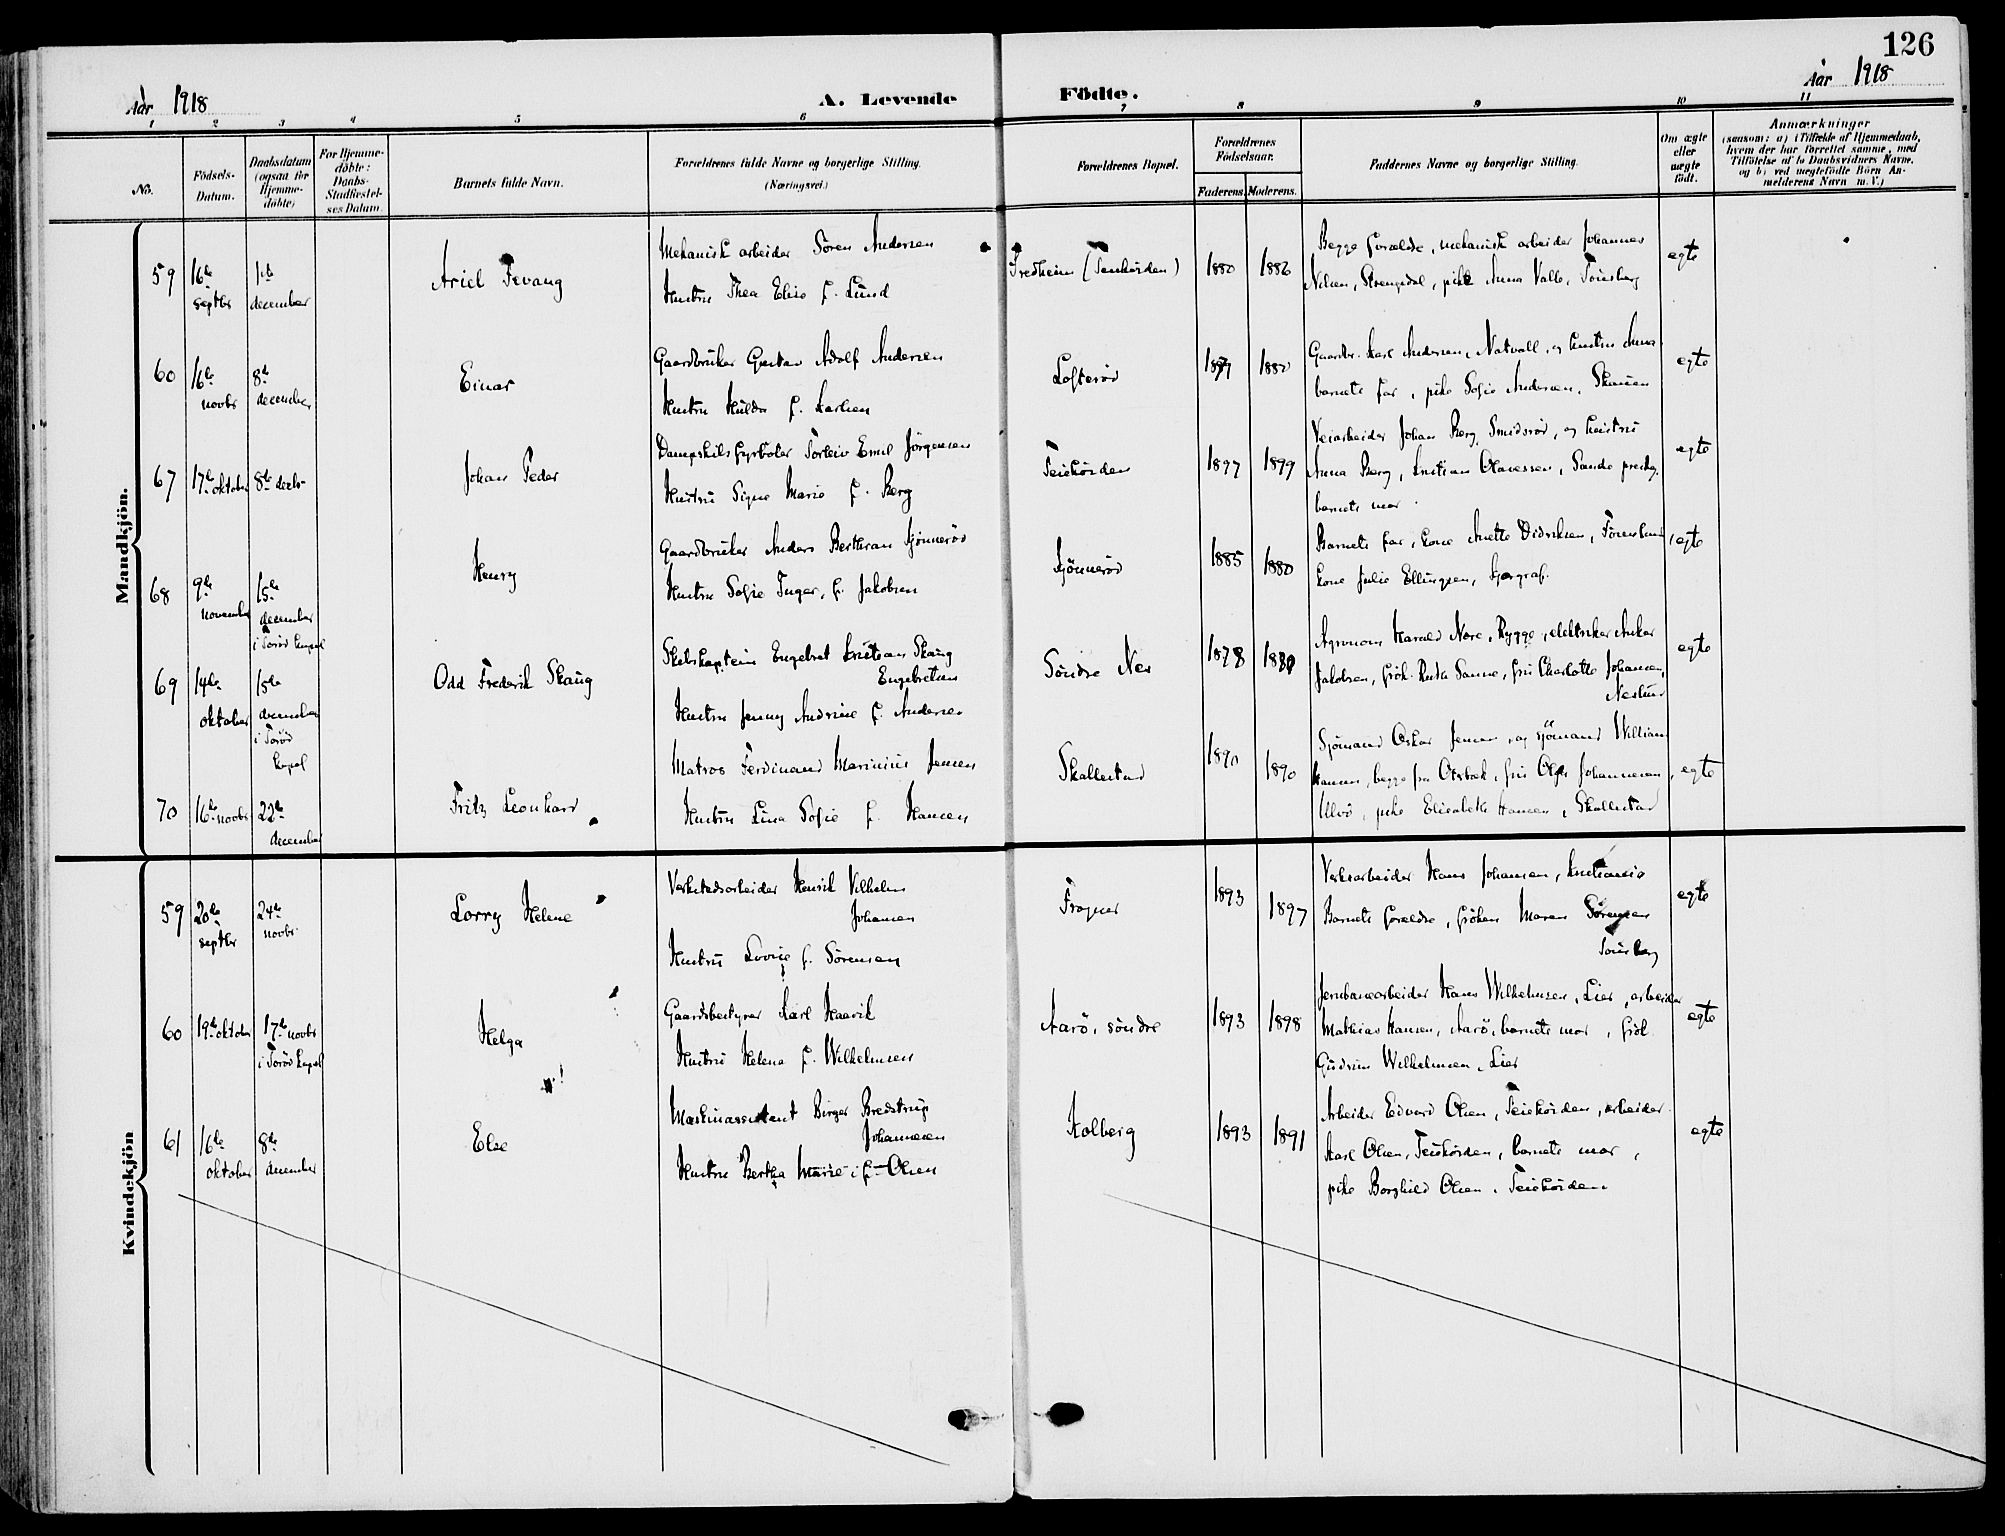 126
Aar 1918
A. Levende
Födte.
Aar 1918
1 2 3 4 5 6 7 8 9 10 11
No.
Födsels-
Datum.
Daabsdatum
(ogsaa for
Hjemme-
döbte)
For Hjemme-
döbte:
Daabs-
Stadfæstel-
ses Datum.
Barnets fulde Navn.
Forældrenes fulde Navne og borgerlige Stilling.
(Næringsvei.)
Forældrenes Bopæl.
Forældrenes
Födselsaar.
Faderens. Moderens.
Faddernes Navne og borgerlige Stilling.
Om ægte
eller
uægte
födt.
Anmærkninger
(saasom: a) i Tilfælde af Hjemmedaab,
hvem der har forrettet samme, med
Tilföielse af to Daabsvidners Navne,
og b) ved uægtefödte Börn An-
melderens Navn m. V.)
Mandkjön.
59
16de
septbr
1ste
december
Ariel Fevang
Mekanisk arbeider Sören Andersen
Hustru Thea Elise f. Lund
Fredheim
1880
1886
Begge forældre, mekanisk arbeider Johannes
Nilsen, pike Anna Valle, Tönsberg
egte
60
16de
novbr
8de
december
Einar
Gaardbruker Gustav Adolf Andersen
Hustru Hulda f. Karlsen
Lofteröd
1880
Gaardbr. Karl Andersen, Natvall, og hustru Anna
barnets far, pike Sofie Andersen,
egte
67
17de oktober
8de decbr
Johan Peder
Dampskibsfyrböter Torleiv Emil Jörgensen
Hustru Signe Marie f. Berg
Teiehöiden
1897
1899
Veiarbeider Johan Berg, Smidsröd, og hustru
Anna Berg, Kristian Olavessen, Sande prestg.
barnets mor.
egte
68
9de
november
15de
december
i Toröd kapel
Henry
Gaardbruker Anders Berthran Hjönneröd
Hustru Sofie Inga, f. Jakobsen
Hjönneröd
1885
1880
Barnets far, kone Anette Didriksen,
kone Julie Ellingsen,
egte
69
14de
oktober
15de
december
i Toröd
kapel
Odd Frederik Skaug
Skibskaptein Engebret Kristian Skaug
Engebretsen
Hustru Jenny Andrine f. Andersen
Söndre Nes
1878
Agronom Harald Nore, Rygge, elektriker Anker
Jakobsen, frök. Ruth Sanne, fru Charlotte Johansen,
egte
70
16de novbr
22de
december
Fritz Leonhard
Matros Ferdinand Marinius Jensen
Hustru Lina Sofie f. Hansen
Skallestad
1890
1890
Sjömand Oskar Jensen og sjömand William
Hansen, begge fra Oksbæk, fru Olga Johannesen,
Ulvö, pike Elisabeth Hansen, Skallestad
egte
Kvindekjön
59
20de
septbr
24de
novbr.
Lorry Helene
Verkstedsarbeider Henrik Vilhelm
Johansen
Hustru Lovise f. Sörensen
Fragner
1893
1897
Verksarbeider Hans Johansen, Kristiania
Barnets forældre, fröken Maren Sörensen
Tönsberg
egte
60
19de oktober
17de novbr
i Toröd kapel
Helga
Gaardsbestyrer Karl Haavik
Hustru Helena f. Wilhelmsen
Aarö, söndre
1893
1898
Jernbanearbeider Hans Wilhelmsen, Lier, arbeider
Mathias Hansen, Aarö, barnets mor, frök.
Gudrun Wilhelmsen, Lier
egte
61
16de
oktober
8de
december
Else
Maskinassistent Birger Bredstrup
Johannesen
Hustru Bertha Marie f. Olsen
Holberg
1893
1891
Arbeider Edvard Olsen, Teiehöiden, arbeider
Karl Olsen, Teiehöiden, barnets mor,
pike Borghild Olsen, Teiehöiden
egte